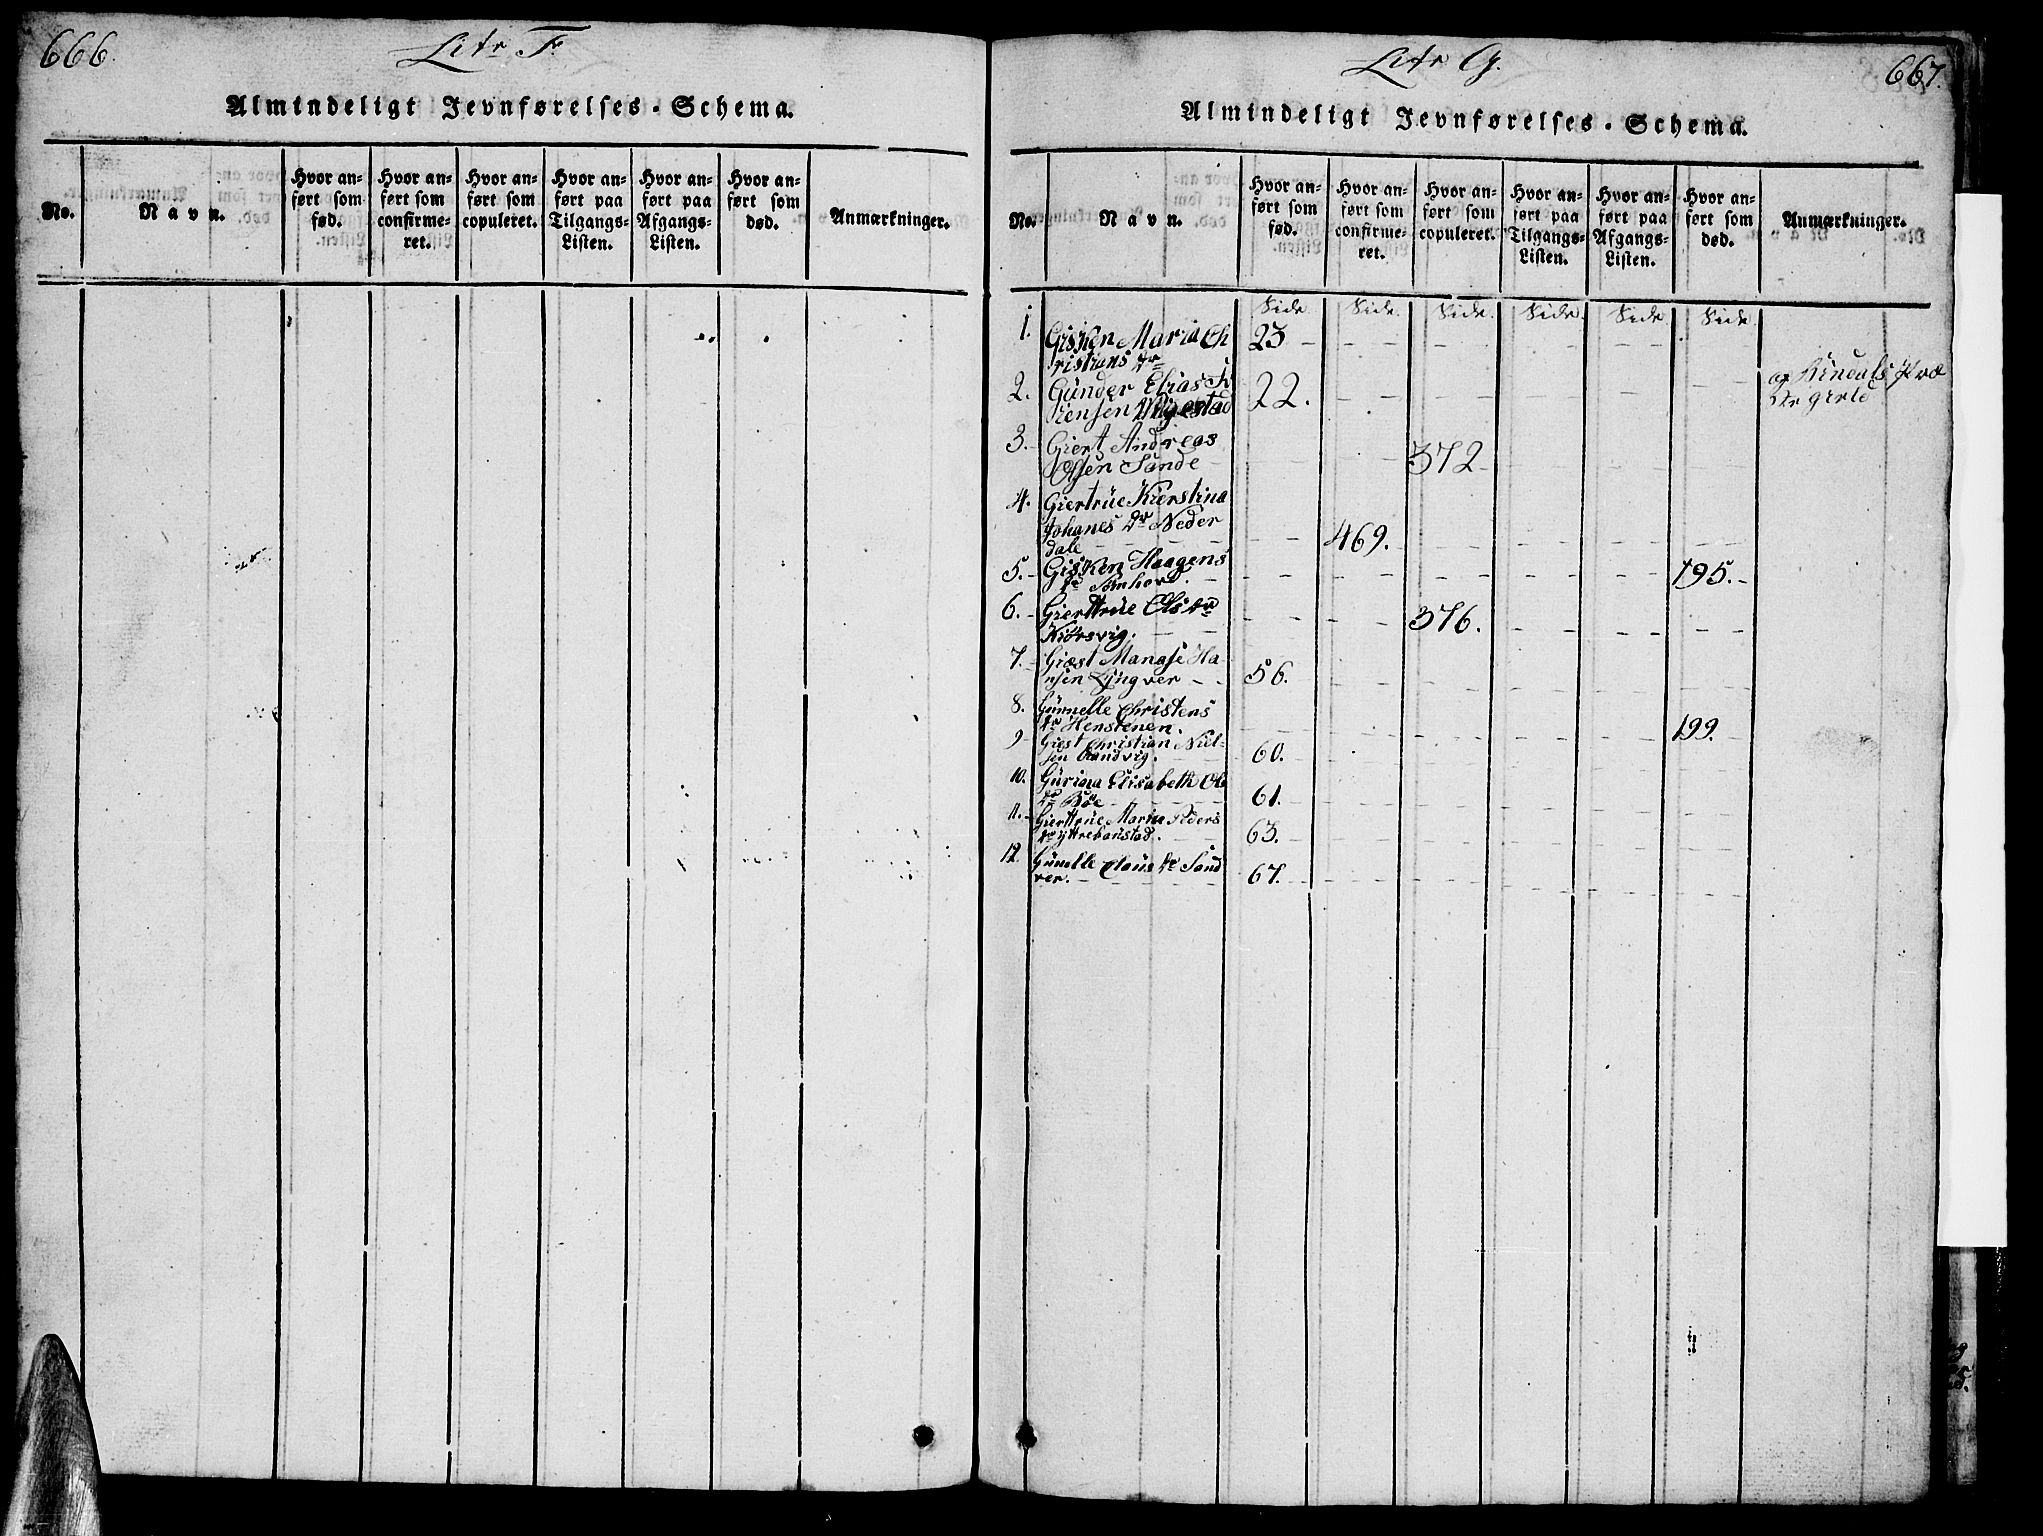 666.
Litr F.
Almindeligt Jevnførelses-Schema.
No.
Navn.
Hvor anført som fød.
Hvor anført som confirmeret.
Hvor anført som copuleret.
Hvor anført paa Tilgangs-Listen.
Hvor anført paa Afgangs-Listen.
Hvor anført som død.
Anmærkninger.
Litr G.
667.
Almindeligt Jevnførelses-Schema.
No.
Navn.
Hvor anført som fød.
Hvor anført som confirmeret.
Hvor anført som copuleret.
Hvor anført paa Tilgangs-Listen.
Hvor anført paa Afgangs-Listen.
Hvor anført som død.
Anmærkninger.
Side Side. Side. Side. Side. Side.
1. Gisken Maria Ch 23
ristians dr
2. Günder Elias 22.
3. Giert Andreas
Olsen Sande 372
4. Giertrüe Kierstina
Johanes dr Neder
dale 469.
5. Gisken Haagens 195.
dr
6. Gierttrüe Ols dr 376.
7. Giæst Manase Ha
nsen Lyngver 56.
8. Günnelle Christens
dr Henstenen. 199.
9 Giest Christian Niel-
sen Sandvig. 60.
10. Gurina Elisabeth Ols
dr Böe 61.
11. Gierttrüe Maria Peders
dr 63.
12. Günelle Claus dr Sand
ver. 67.